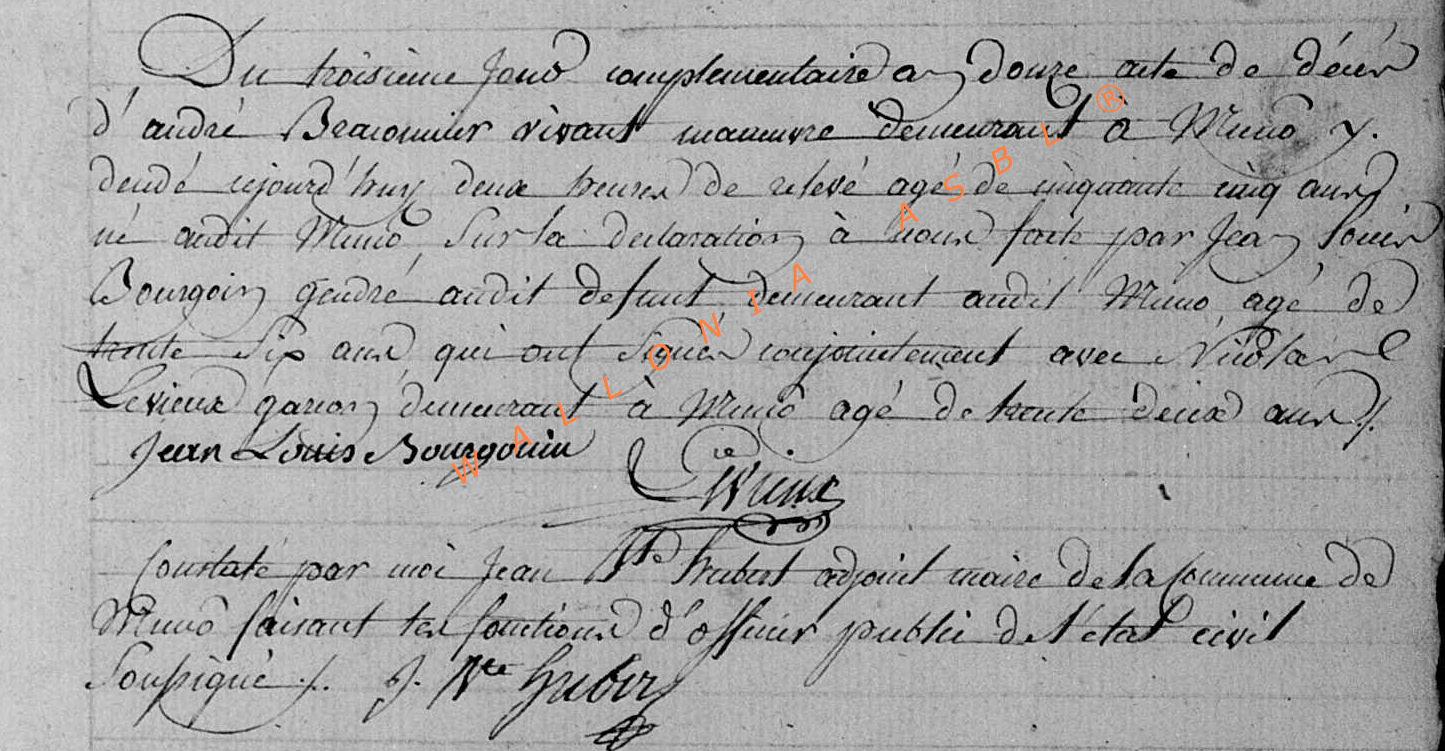 Du troisieme Jour complementaire an douze acte de décés
d'andré Beauonnier vivant manuvre demeurant à Muno y.
dcudé cejourd'huy deux heures de relevé agé de cinquante cinq ans
né audit Muno, Sur la declaration à nous faite par Jean Louis
Bourgoin gendre audit defunt demeurant audit Muno, agé de
trente Six ans qui ont Signés conjointement avec Nicolas
Levieux garcon demeurant à Muno agé de trente deux ans ./.
Jean Louis Bourgouin
Constaté par moi Jean Bte hubert adjoint maire de la Commune de
Muno faisant les fonctions d'officier public de l'état civil
Soussigné ./. J. Bte hubert
WALLONIA ASBL ®